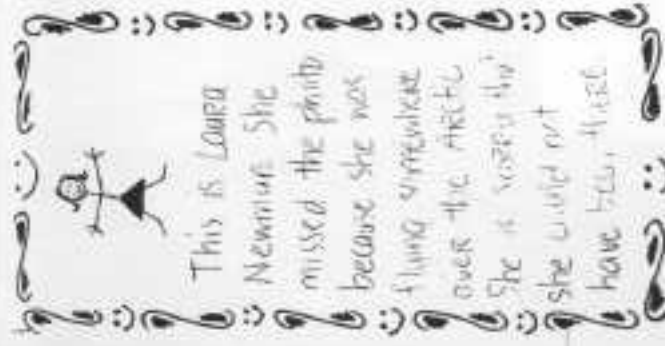 This is Laura
Newman. She
missed the photo
because she was
flying somewhere
over the Arctic
She is sorry tha
she could not
have been there